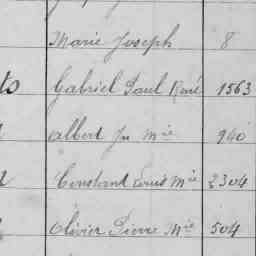 Marie Joseph 8
Gabriel Paul René 1563
Albert Jn Mie 940
Constant Louis Mie 2304
Olivier Pierre Mie 504